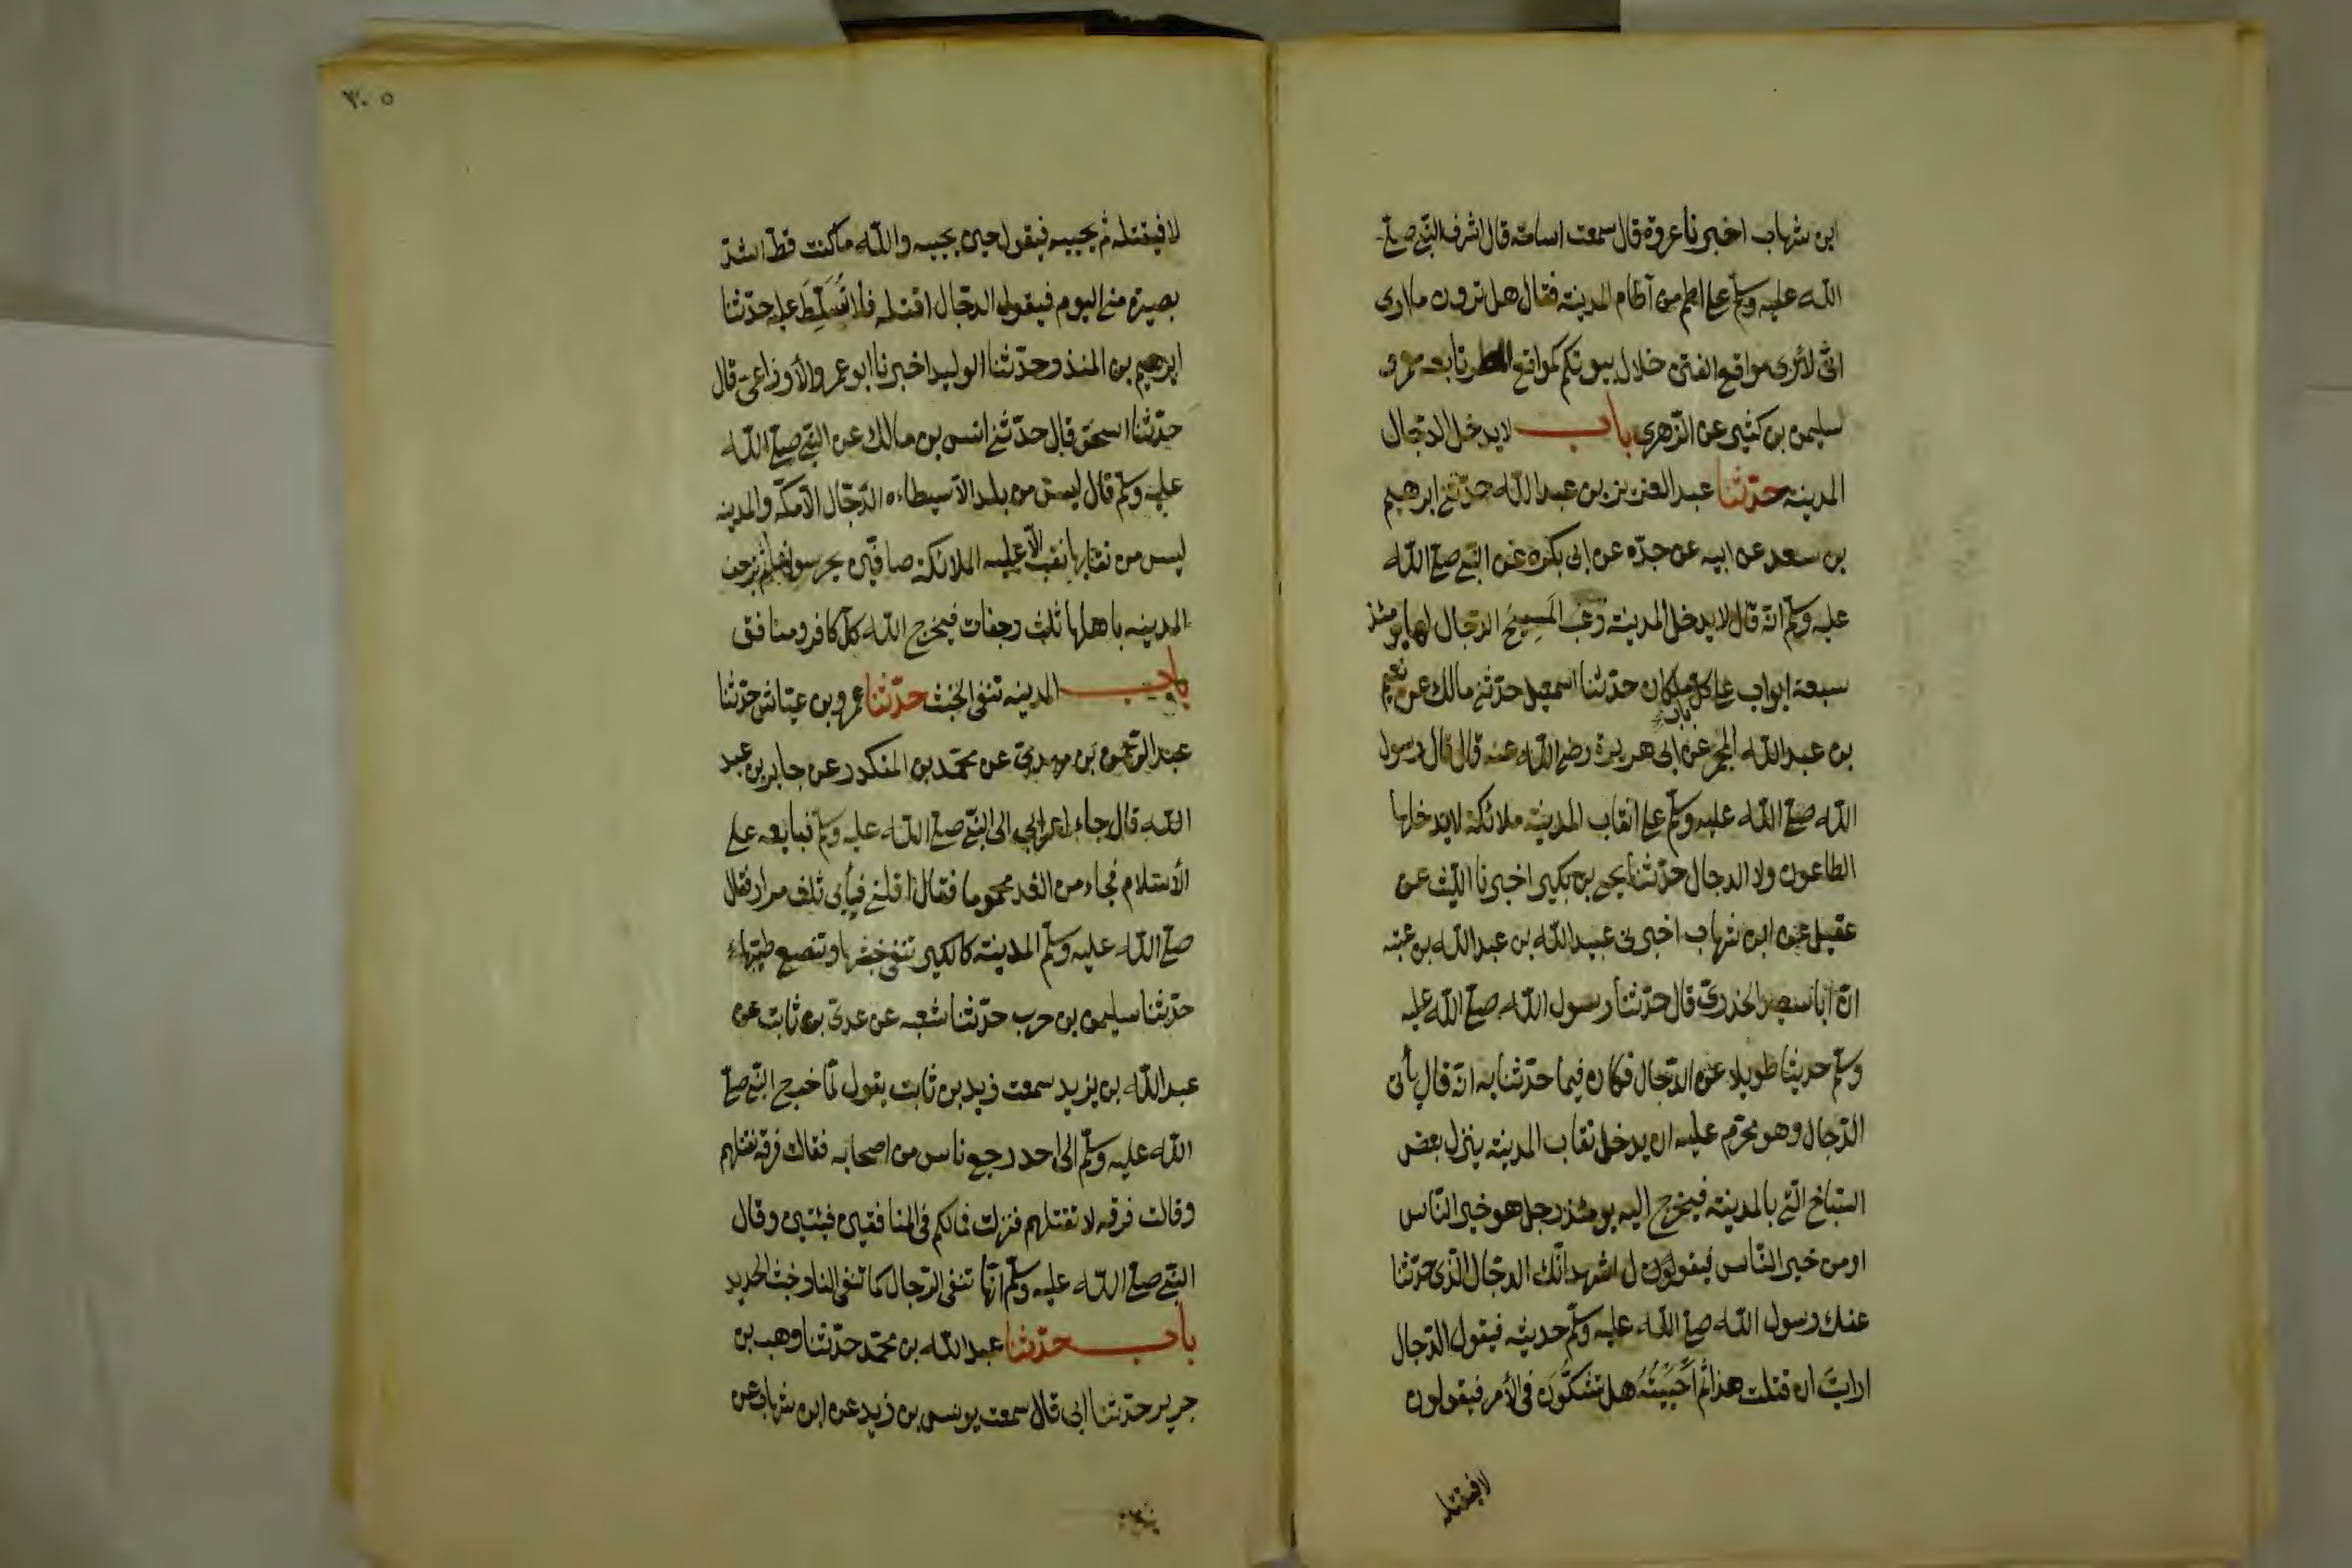 ابن شهاب اخبرنا عروة قال سمعت اسامة قال اشرف النبي صلى
الله عليه وسلم على اطم من آطام المدينة فقال هل ترون ما ارى
اني لأرى مواقع الفتن خلال بيوتكم كمواقع القطر تابعه معمر و
سليمن بن كثير عن الزهري باب لا يدخل الدجال
المدينه حدّثنا عبد العزيز بن عبد الله حدّثني ابرهيم
بن سعد عن ابيه عن جدّه عن ابي بكره عن النبي صلى الله
عليه وسلم انه قال لا يدخل المدينة رعب المَسِيحُ الدجال لها يومئذ
سبعة ابواب على كل ملكان حدّثنا اسمعيل حدّثني مالك عن نعيم
باب
بن عبد الله المجمر عن ابي هريرة رضي الله عنه قال قال رسول
الله صلى الله عليه وسلم على انقاب المدينة ملائكة لا يدخلها
الطاعون ولا الدجال حدّثنا يحيى بن بكير اخبرنا الليث عن
عقيل عن ابن شهاب اخبرني عبيد الله بن عبد الله بن عتبه
انّ ابا سعيد الخدريّ قال حدّثنا رسول الله صلى الله عليه
وسلم حديثا طويلا عن الدجال فكان فيما حدّثنا به انه قال يأتي
الدّجال وهو محرّم عليه ان يدخل نقاب المدينة ينزل بعض
السّباخ التي بالمدينة فيخرج اليه يومئذ رجل هو خير النّاس
او من خير النّاس فيقول اشهد انّك الدجّال الذي حدّثنا
عنك رسول الله صلى الله عليه وسلم حديثه فيقول الدّجال
ارايتَ ان قتلت هذا ثم أَحْيَيْتُهُ هل تشكّون في الأمر فيقولون
لا فيقتله

٣٠٥
لا فيقتله ثم يحييه فيقول حين يحييه والله ما كنت قطّ اشدّ
بصيرة مني اليوم فيقول الدجّال اقتله فلا تُسَلَّطَ عليه حدّثنا
ابرهيم بن المنذر حدّثنا الوليد اخبرنا ابو عمرو الأوزاعيّ قال
حدّثنا اسحق قال حدّثني انس بن مالك عن النبي صلى الله
عليه وسلم قال ليس من بلد الا سيطاءه الدّجّال الا مكّة والمدينه
ليس من نقابها نقب الا عليه الملائكة صافّين يحرسونها ثم ترجف
المدينه باهلها ثلث رجفات فيخرج الله كلّ كافر ومنافق
باب المدينه تنفي الخبث حدّثنا عمرو بن عبّاس حدّثنا
عبد الرحمن بن مهديّ عن محمّد بن المنكدر عن جابر بن عبد
الله قال جاء اعرابي الى النبي صلى الله عليه وسلم فبايعه على
الأسلام فجاء من الغد محموما فقال اقلني فيأبى ثلث مرار فقال
صلى الله عليه وسلم المدينة كالكير تنفي خبثها وتنصع طيبها
حدّثنا سليمن بن حرب حدّثنا شعبه عن عديّ بن ثابت عن
عبد الله بن يزيد سمعت زيد بن ثابت يقول لمّا خرج النبي صلى
الله عليه وسلم الى احد رجع ناس من اصحابه فقالت فرقة نقتلهم
وقالت فرقه لا نقتلهم فنزلت فمالكم في المنافقين فئتين وقال
النبي صلى الله عليه وسلم انّها تنفي الرّجال كما تنفي النار خبث الحديد
باب حدّثنا عبد الله بن محمّد حدّثنا وهب بن
جرير حدّثنا ابي قال سمعت يونس بن زيد عن ابن شهاب عن